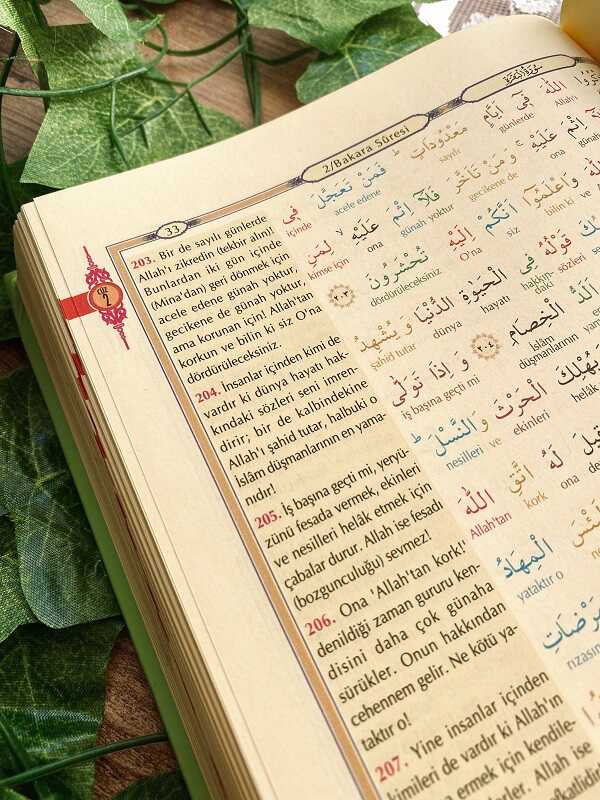 33
2/Bakara Sûresi
سُورَةُ الْبَقَرَةِ
cüz
2
203. Bir de sayılı günlerde
Allah'ı zikredin (tekbir alın)!
Bunlardan iki gün içinde
(Mina'dan) geri dönmek için
acele edene günah yoktur,
gecikene de günah yoktur,
ama korunan için! Allah'tan
korkun ve bilin ki siz O'na
dördürüleceksiniz.
204. İnsanlar içinden kimi de
vardır ki dünya hayatı hak-
kındaki sözleri seni imren-
dirir; bir de kalbindekine
Allah'ı şahid tutar, halbuki o
İslâm düşmanlarının en yama-
nıdır!
205. İş başına geçti mi, yeryü-
zünü fesada vermek, ekinleri
ve nesilleri helâk etmek için
çabalar durur. Allah ise fesadı
(bozgunculuğu) sevmez!
206. Ona 'Allah'tan kork!'
denildiği zaman gururu ken-
disini daha çok günaha
sürükler. Onun hakkından
cehennem gelir. Ne kötü ya-
taktır o!
207. Yine insanlar içinden
kimileri de vardır ki Allah'ın
ermek için kendile-
Allah ise
اللّٰهَ فٖٓى اَيَّامٍ مَعْدُودَاتٍ فَمَنْ تَعَجَّلَ فٖى
Allah'ı günlerde sayılı acele edene içinde
اِثْمَ عَلَيْهِ وَمَنْ تَاَخَّرَ فَلَٓا اِثْمَ عَلَيْهِ لِمَنِ
günah ona gecikene de günah yoktur ona kimse için
وَاعْلَمُٓوا اَنَّكُمْ اِلَيْهِ تُحْشَرُونَ ٢٠٣
ve bilin ki siz O'na dördürüleceksiniz
قَوْلُهُ فِى الْحَيٰوةِ الدُّنْيَا وَيُشْهِدُ
sözleri hakkın-
daki hayatı dünya şahid tutar
اَلَدُّ الْخِصَامِ ٢٠٤ وَاِذَا تَوَلّٰى
İslâm
düşmanlarının iş başına geçti mi
وَيُهْلِكَ الْحَرْثَ وَالنَّسْلَ
helâk ekinleri ve nesilleri
لَهُ اتَّقِ اللّٰهَ
ona kork Allah'tan
الْمِهَادُ
yataktır o
مَرْضَاتِ
rızasın